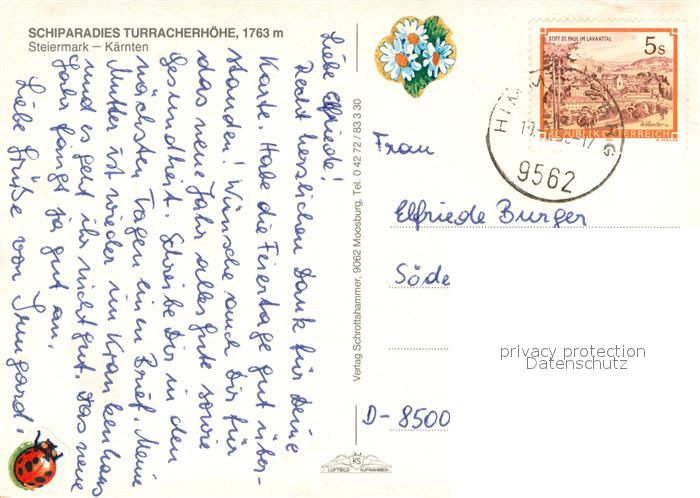 SCHIPARADIES TURRACHERHÖHE, 1763 m
Steiermark – Kärnten
Liebe Elfriede!
Recht herzlichen Dank für Deine
Karte. Habe die Feiertage gut über-
standen! Wünsche auch Dir für
das neue Jahr alles Gute sowie
Gesundheit. Schreibe Dir in den
nächsten Tagen einen Brief. Meine
Mutter ist wieder im Krankenhaus
und es geht ihr nicht gut. Das neue
Jahr fängt ja gut an.
Liebe Grüße von Irmgard.
Verlag Schrottshammer, 9062 Moosburg, Tel. 0 42 72 / 83 3 30
KS
LUFTBILD AUFNAHMEN
STIFT ST. PAUL IM LAVANTTAL
5 s
REPUBLIK ÖSTERREICH
9562
Frau
Elfriede Burger
Söde
privacy protection
Datenschutz
D-8500